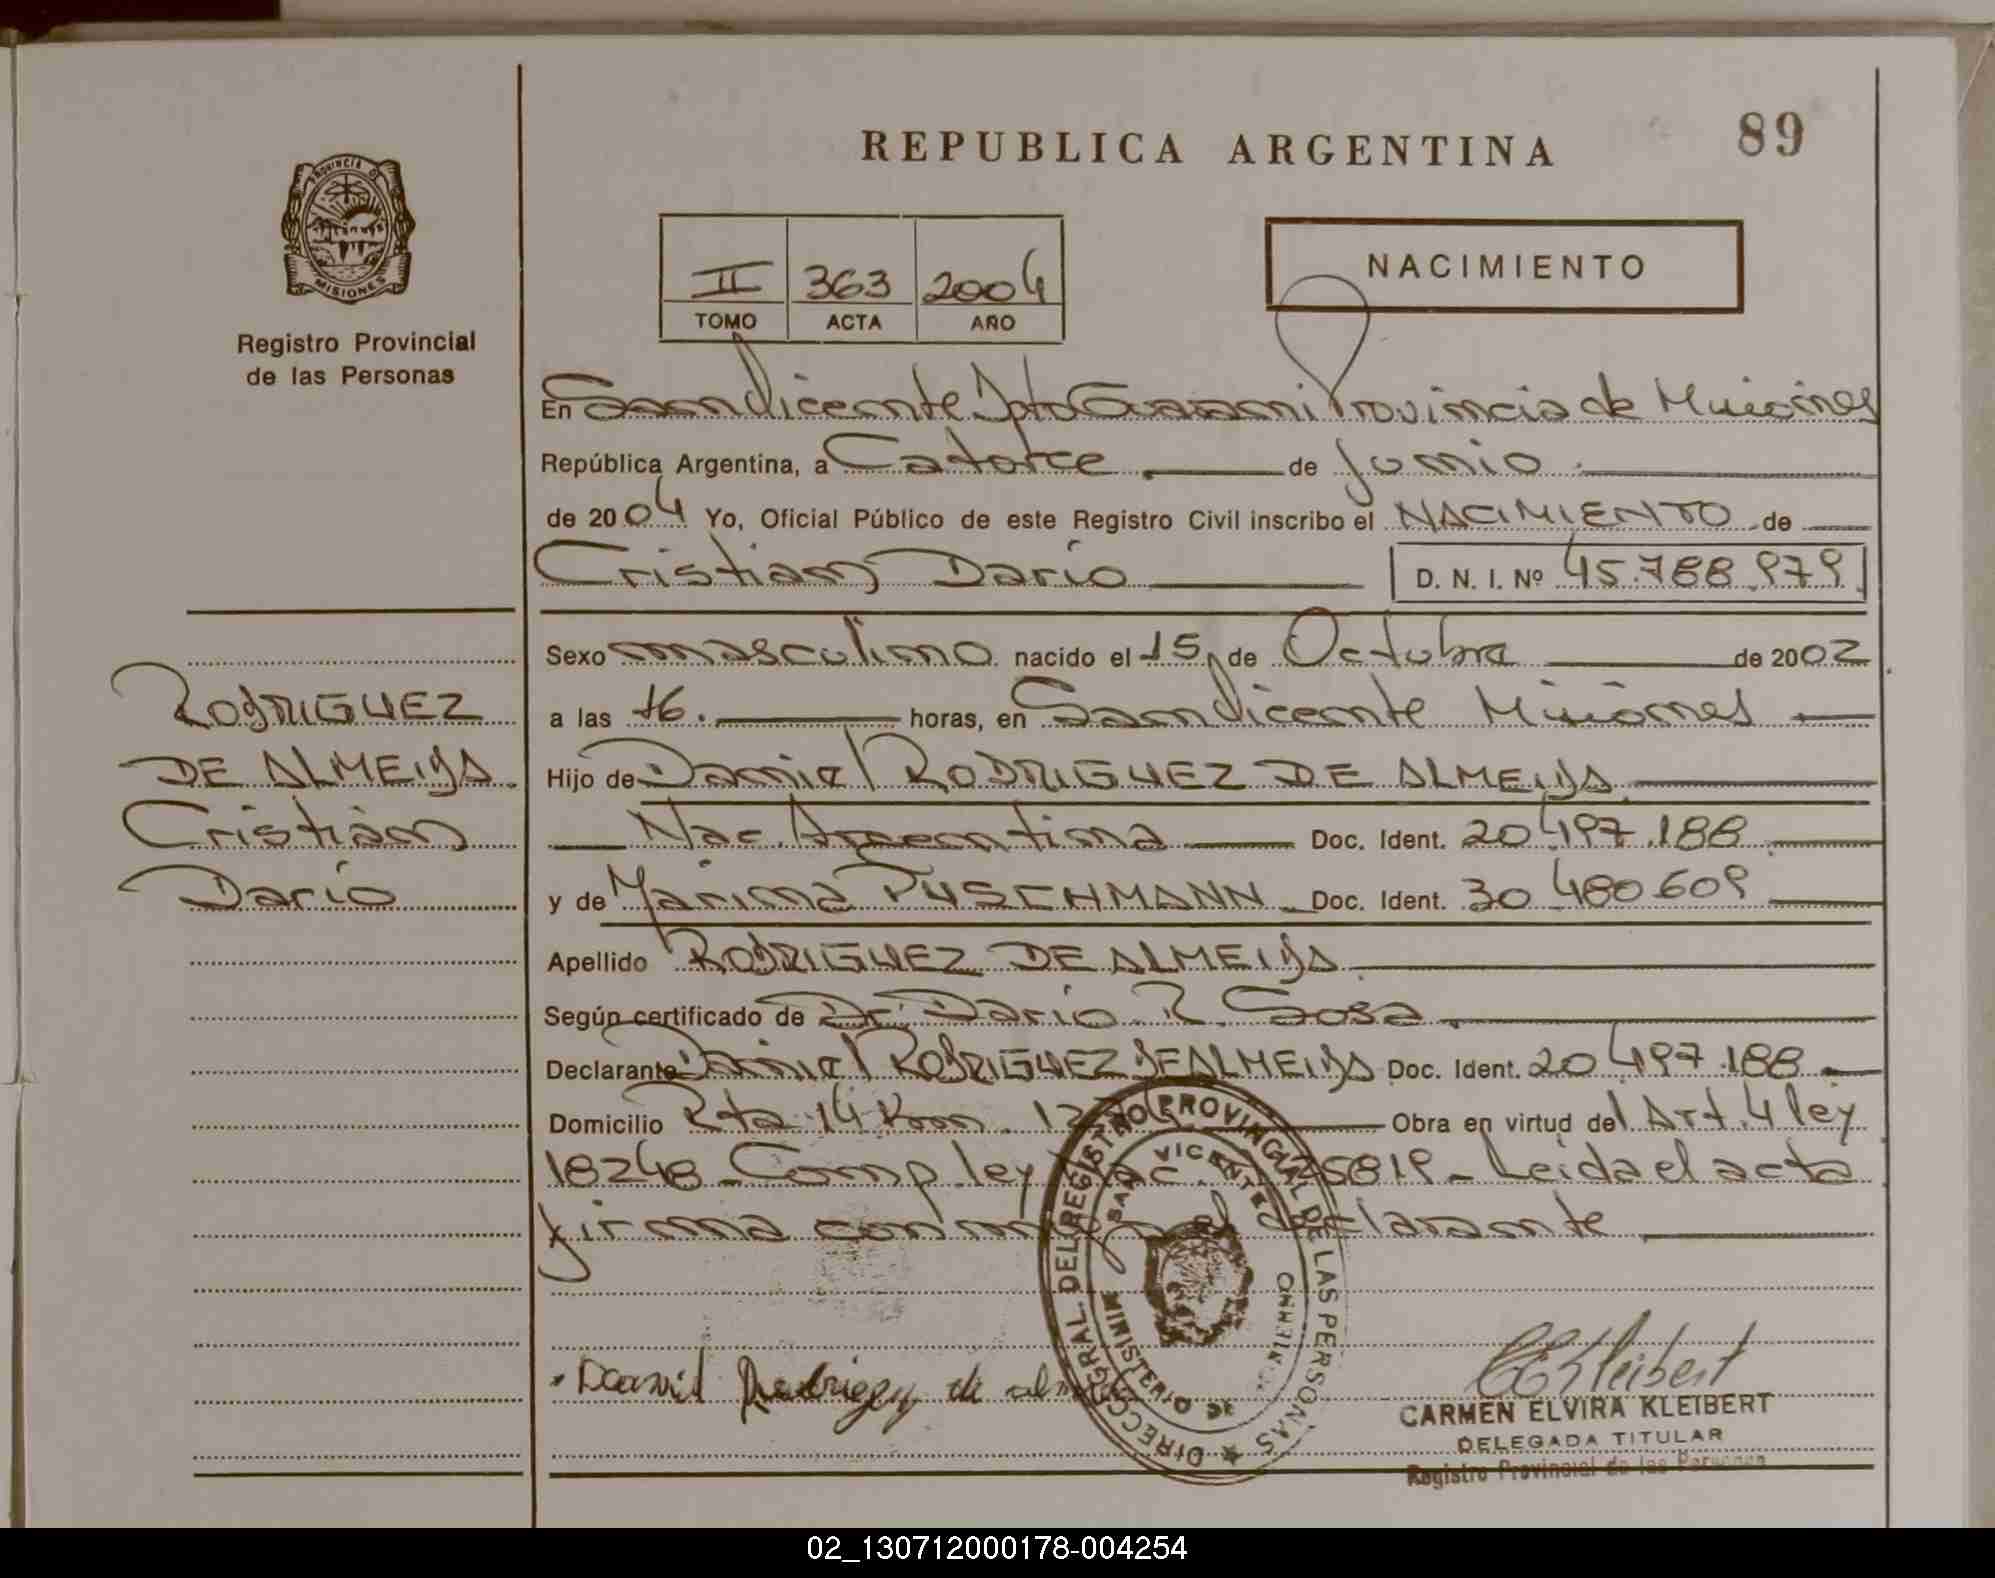 89
REPUBLICA ARGENTINA
PROVINCIA DE
MISIONES
Registro Provincial
de las Personas
NACIMIENTO
II 363 2004
TOMO ACTA AÑO
En San Vicente Dpto Guarani Provincia de Misiones
República Argentina, a Catorce de Junio
de 2004 Yo, Oficial Público de este Registro Civil inscribo el NACIMIENTO de
Cristian Dario D. N. I. Nº 45.788.979
Sexo masculino nacido el 15 de Octubre de 2002
a las 16. horas, en San Vicente Misiones
Hijo de Daniel RODRIGUEZ DE ALMEIDA
Nac. Argentina Doc. Ident. 20.497.188
y de Marina PUSCHMANN Doc. Ident. 30.480.609
Apellido RODRIGUEZ DE ALMEIDA
Según certificado de Dr. Dario R. Sosa
Declarante Daniel RODRIGUEZ DE ALMEIDA Doc. Ident. 20.497.188
Domicilio Rta 14 Km. Obra en virtud del Art. 4 ley
18248 - Comp. ley 25819 - Leida el acta
firma conmigo el declarante
RODRIGUEZ
DE ALMEIDA
Cristian
Dario
Daniel Rodriguez de
DIRECC. GRAL. DEL REGISTRO PROVINCIAL DE LAS PERSONAS
SAN VICENTE
MINISTERIO DE
CEKleibert
CARMEN ELVIRA KLEIBERT
DELEGADA TITULAR
Registro Provincial de las Personas
02_130712000178-004254